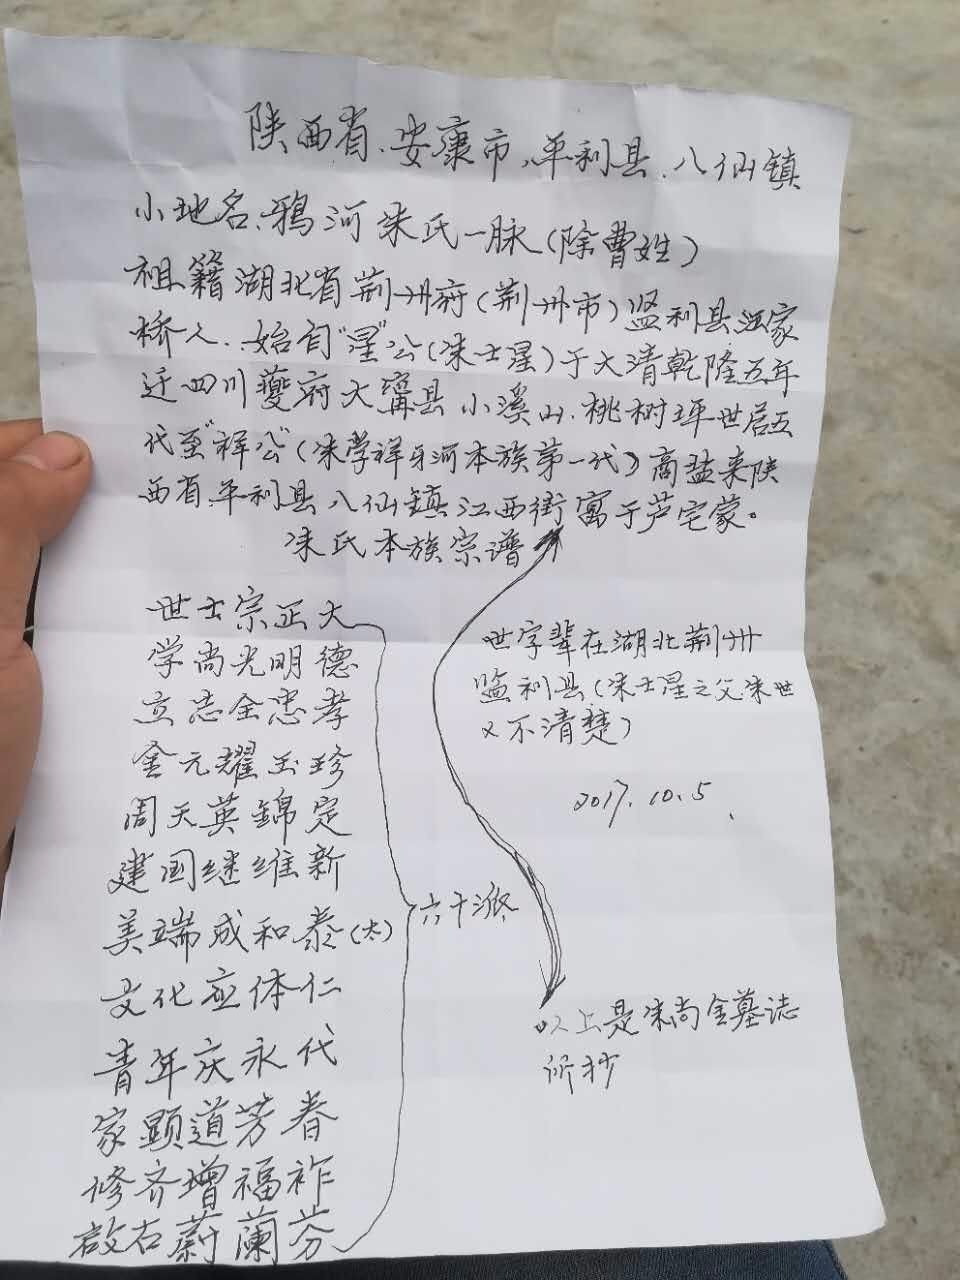 陕西省、安康市、平利县、八仙镇
小地名、鸦河涂氏一脉（除曹姓）
祖籍湖北省荆州府（荆州市）监利县江家
桥人、始自“瀅”公（涂士瀅）于大清乾隆五年
迁四川夔府大甯县小溪山、桃树坪世居五
代至“祥公”（涂学祥牙河本族第一代）商盐来陕
西省、平利县八仙镇江西街寓于芦宅蒙。
涂氏本族宗谱
世士宗正大
学尚光明德
立志全忠孝
金元耀玉珍
周天英錦定
建国继维新
美端成和泰（太）
文化应体仁
青年庆永代
家顕道芳春
修齐增福祚
啟右蔚蘭芬
六十派
世字辈在湖北荆州
监利县（涂士瀅之父涂世
义不清楚）
2017.10.5.
以上是涂尚全墓誌
所抄